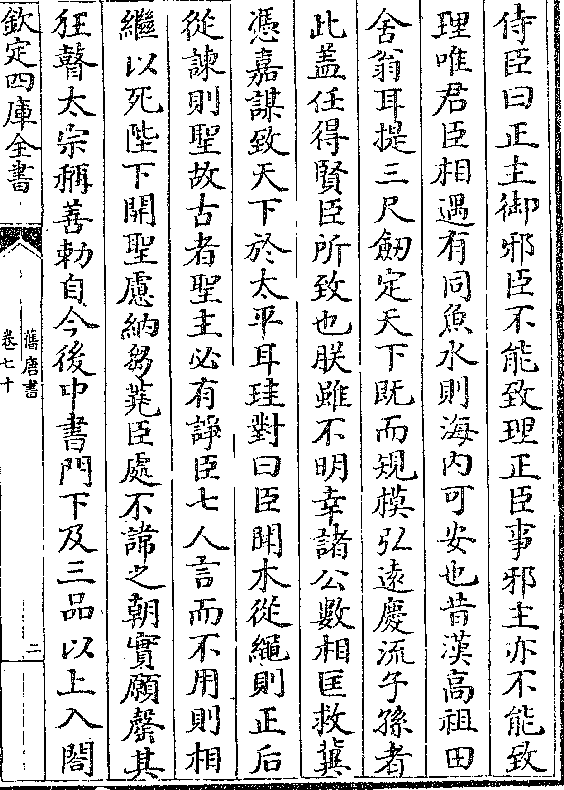 侍臣曰正主御邪臣不能致理正臣事邪主亦不能致
理唯君臣相遇有同魚水則海内可安也昔漢高祖田
舍翁耳提三尺劒定天下既而規模弘遠慶流子孫者
此葢任得賢臣所致也朕雖不明幸諸公數相匡救冀
憑嘉謀致天下於太平耳珪對曰臣聞木從繩則正后
從諫則聖故古者聖主必有諍臣七人言而不用則相
繼以死陛下開聖慮納芻蕘臣處不諱之朝實願罄其
狂瞽太宗稱善勅自今後中書門下及三品以上入閤
欽定四庫全書
舊唐書
卷七十
二